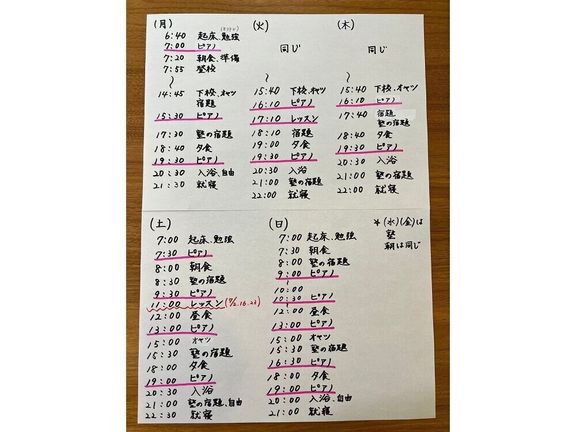 (月)
6:40 起床、勉強
7:00 ピアノ
7:20 朝食、準備
7:55 登校
〜
14:45 下校、オヤツ
宿題
15:30 ピアノ
17:30 塾の宿題
18:40 夕食
19:30 ピアノ
20:30 入浴、自由
21:30 就寝
(火)
同じ
〜
15:40 下校、オヤツ
16:10 ピアノ
17:10 レッスン
18:10 宿題
19:00 夕食
19:30 ピアノ
20:30 入浴
21:00 塾の宿題
22:00 就寝
(木)
同じ
〜
15:40 下校、オヤツ
16:10 ピアノ
17:40 宿題
塾の宿題
18:40 夕食
19:30 ピアノ
20:30 入浴
21:00 塾の宿題
22:00 就寝
(土)
7:00 起床、勉強
7:30 ピアノ
8:00 朝食
8:30 塾の宿題
9:30 ピアノ
11:00 レッスン
12:00 昼食
13:00 ピアノ
15:00 オヤツ
15:30 塾の宿題
18:00 夕食
19:00 ピアノ
20:30 入浴
21:00 塾の宿題、自由
22:30 就寝
(日)
7:00 起床、勉強
7:30 朝食
8:00 塾の宿題
9:00 ピアノ
10:00
10:30 ピアノ
12:00 昼食
13:00 ピアノ
15:00 オヤツ
15:30 塾の宿題
16:30 ピアノ
18:00 夕食
19:00 ピアノ
20:00 入浴、自由
21:00 就寝
* (水)(金)は
塾
朝は同じ